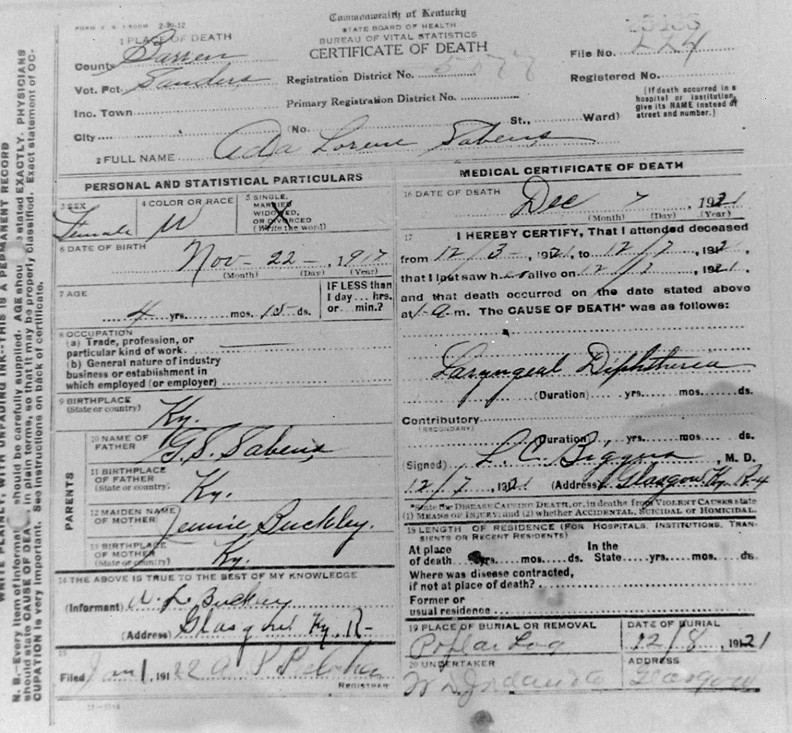 Commonwealth of Kentucky
STATE BOARD OF HEALTH
BUREAU OF VITAL STATISTICS
CERTIFICATE OF DEATH
1 PLACE OF DEATH
County Barren
Vot. Pct. Sanders
Inc. Town
City
Registration District No.
Primary Registration District No.
(No. St., Ward)
File No. 224
Registered No.
[If death occurred in a
hospital or institution,
give its NAME instead of
street and number.]
2 FULL NAME Ada Lorene Sabens
PERSONAL AND STATISTICAL PARTICULARS
3 SEX
Female
4 COLOR OR RACE
W
5 SINGLE,
MARRIED
WIDOWED,
OR DIVORCED
(Write the word)
6 DATE OF BIRTH
Nov - 22 - , 1917
(Month) (Day) (Year)
7 AGE
4 yrs. mos. 15 ds.
IF LESS than
1 day... hrs.
or... min.?
8 OCCUPATION
(a) Trade, profession, or
particular kind of work
(b) General nature of industry
business or establishment in
which employed (or employer)
9 BIRTHPLACE
(State or country)
Ky.
PARENTS
10 NAME OF
FATHER
G.S. Sabens
11 BIRTHPLACE
OF FATHER
(State or country)
Ky.
12 MAIDEN NAME
OF MOTHER
Jennie Buckley.
13 BIRTHPLACE
OF MOTHER
(State or country)
Ky.
14 THE ABOVE IS TRUE TO THE BEST OF MY KNOWLEDGE
(Informant)
(Address) Ky. R-
15
Filed Jan 1, 1922
REGISTRAR
MEDICAL CERTIFICATE OF DEATH
16 DATE OF DEATH
Dec 7, 1921
(Month) (Day) (Year)
17 I HEREBY CERTIFY, That I attended deceased
from 12/3-, 1921, to 12/7, 1921,
that I last saw her alive on 12/7, 1921.
and that death occurred on the date stated above
at 1 a. m. The CAUSE OF DEATH* was as follows:
Laryngeal Diphtheria
(Duration) yrs. mos. ds.
Contributory
(SECONDARY)
(Duration) yrs. mos. ds.
(Signed) L.C. M. D.
12/7, 1921 (Address) Glasgow, Ky. R-4
*State the DISEASE CAUSING DEATH, or, in deaths from VIOLENT CAUSES state
(1) MEANS OF INJURY; and (2) whether ACCIDENTAL, SUICIDAL or HOMICIDAL.
18 LENGTH OF RESIDENCE (FOR HOSPITALS, INSTITUTIONS, TRAN-
SIENTS OR RECENT RESIDENTS)
At place In the
of death yrs. mos. ds. State yrs. mos. ds.
Where was disease contracted,
if not at place of death?
Former or
usual residence
19 PLACE OF BURIAL OR REMOVAL
Poplar Log
DATE OF BURIAL
12/8, 1921
20 UNDERTAKER
ADDRESS
Glasgow